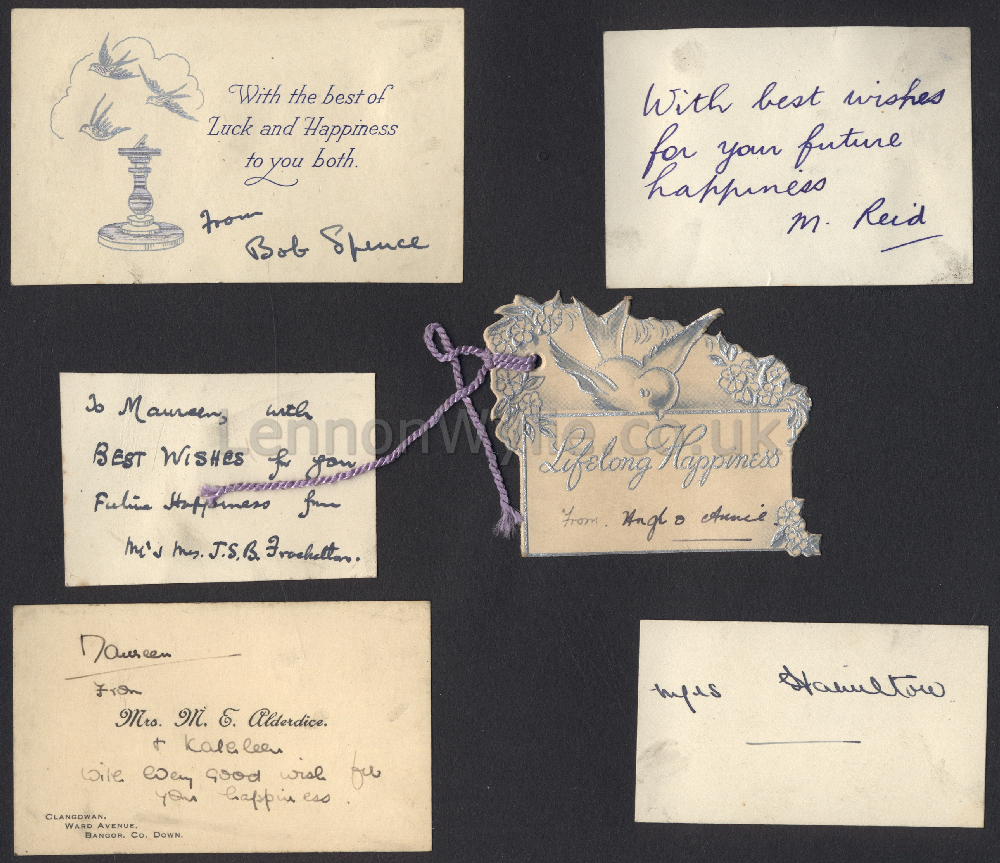 With the best of
Luck and Happiness
to you both.
From
Bob Spence
With best wishes
for your future
happiness
M. Reid
To Maureen, with
BEST WISHES for you
Future Happiness from
Mr & Mrs. J.S.B.
Lifelong Happiness
From. Hugh & Annie.
LennonWylie.co.uk
Maureen
From
Mrs. M. E. Alderdice.
+ Kathleen
With every good wish for
your happiness.
CLANGOWAN,
WARD AVENUE,
BANGOR, CO. DOWN.
Mrs Hamilton